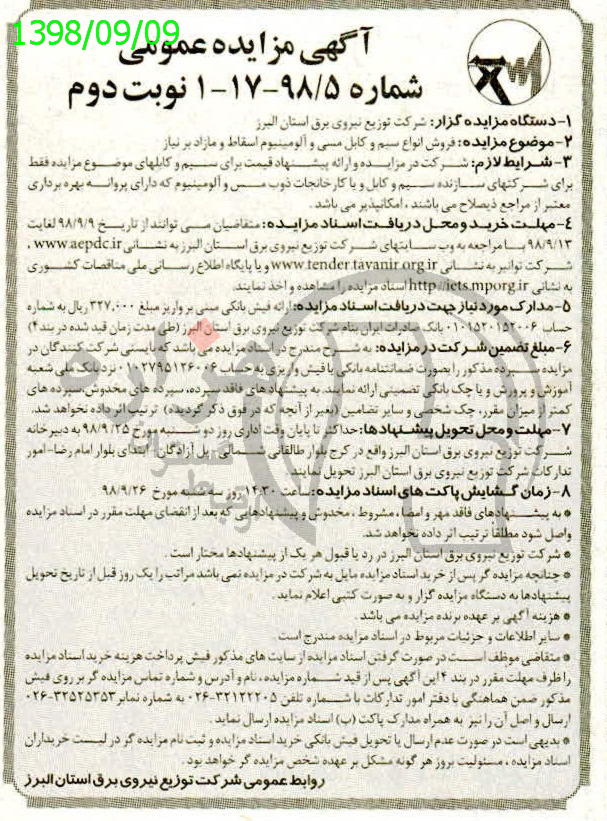 1398/09/09
آگهی مزایده عمومی
شماره ۹۸/۵-۱۷-۱ نوبت دوم
۱-دستگاه مزایده گزار: شرکت توزیع نیروی برق استان البرز
۲-موضوع مزایده: فروش انواع سیم و کابل مسی و آلومینیوم اسقاط و مازاد بر نیاز
۳-شرایط لازم: شرکت در مزایده و ارائه پیشنهاد قیمت برای سیم و کابلهای موضوع مزایده فقط
برای شرکتهای سازنده سیم و کابل و یا کارخانجات ذوب مس و آلومینیوم که دارای پروانه بهره برداری
معتبر از مراجع ذیصلاح می باشند ، امکانپذیر می باشد .
۴-مهلت خرید و محل دریافت اسناد مزایده: متقاضیان می توانند از تاریخ ۹۸/۹/۹ لغایت
۹۸/۹/۱۳ با مراجعه به وب سایتهای شرکت توزیع نیروی برق استان البرز به نشانی www.aepdc.ir ،
شرکت توانیر به نشانی www.tender.tavanir.org.ir و یا پایگاه اطلاع رسانی ملی مناقصات کشوری
به نشانی http://iets.mporg.ir اسناد مزایده را مشاهده و اخذ نمایند.
۵-مدارک مورد نیاز جهت دریافت اسناد مزایده: ارائه فیش بانکی مبنی بر واریز مبلغ ۳۲۷,۰۰۰ ریال به شماره
حساب ۰۱۰۱۵۲۰۱۵۲۰۰۶ بانک صادرات ایران بنام شرکت توزیع نیروی برق استان البرز (طی مدت زمان قید شده در بند۴)
۶-مبلغ تضمین شرکت در مزایده: به شرح مندرج در اسناد مزایده می باشد که بایستی شرکت کنندگان در
مزایده سپرده مذکور را بصورت ضمانتنامه بانکی یا فیش واریزی به حساب ۰۱۰۲۷۹۵۱۲۶۰۰۶ نزد بانک ملی شعبه
آموزش و پرورش و یا چک بانکی تضمینی ارائه نمایند. به پیشنهادهای فاقد سپرده، سپرده های مخدوش، سپرده های
کمتر از میزان مقرر، چک شخصی و سایر تضامین (بغیر از آنچه که در فوق ذکر گردیده) ترتیب اثر داده نخواهد شد.
۷-مهلت و محل تحویل پیشنهادها: حداکثر تا پایان وقت اداری روز دو شنبه مورخ ۹۸/۹/۲۵ به دبیرخانه
شرکت توزیع نیروی برق استان البرز واقع در کرج بلوار طالقانی شمالی- پل آزادگان- ابتدای بلوار امام رضا- امور
تدارکات شرکت توزیع نیروی برق استان البرز تحویل نمایند
۸-زمان گشایش پاکت های اسناد مزایده: ساعت ۱۴:۳۰ روز سه شنبه مورخ ۹۸/۹/۲۶
* به پیشنهادهای فاقد مهر و امضا، مشروط ، مخدوش و پیشنهادهایی که بعد از انقضای مهلت مقرر در اسناد مزایده
واصل شود مطلقا ترتیب اثر داده نخواهد شد.
* شرکت توزیع نیروی برق استان البرز در رد یا قبول هر یک از پیشنهادها مختار است .
* چنانچه مزایده گر پس از خرید اسناد مزایده مایل به شرکت در مزایده نمی باشد مراتب را یک روز قبل از تاریخ تحویل
پیشنهادها به دستگاه مزایده گزار و به صورت کتبی اعلام نماید .
* هزینه آگهی بر عهده برنده مزایده می باشد .
* سایر اطلاعات و جزئیات مربوط در اسناد مزایده مندرج است .
* متقاضی موظف است در صورت گرفتن اسناد مزایده از سایت های مذکور فیش پرداخت هزینه خرید اسناد مزایده
را ظرف مهلت مقرر در بند ۴ این آگهی پس از قید شماره مزایده ، نام و آدرس و شماره تماس مزایده گر بر روی فیش
مذکور ضمن هماهنگی با دفتر امور تدارکات با شماره تلفن ۳۲۱۲۲۲۰۵-۰۲۶ به شماره نمابر ۳۲۵۲۵۳۵۳-۰۲۶
ارسال و اصل آن را نیز به همراه مدارک پاکت (ب) اسناد مزایده ارسال نماید .
* بدیهی است در صورت عدم ارسال یا تحویل فیش بانکی خرید اسناد مزایده و ثبت نام مزایده گر در لیست خریداران
اسناد مزایده ، مسئولیت بروز هر گونه مشکل بر عهده شخص مزایده گر خواهد بود .
روابط عمومی شرکت توزیع نیروی برق استان البرز